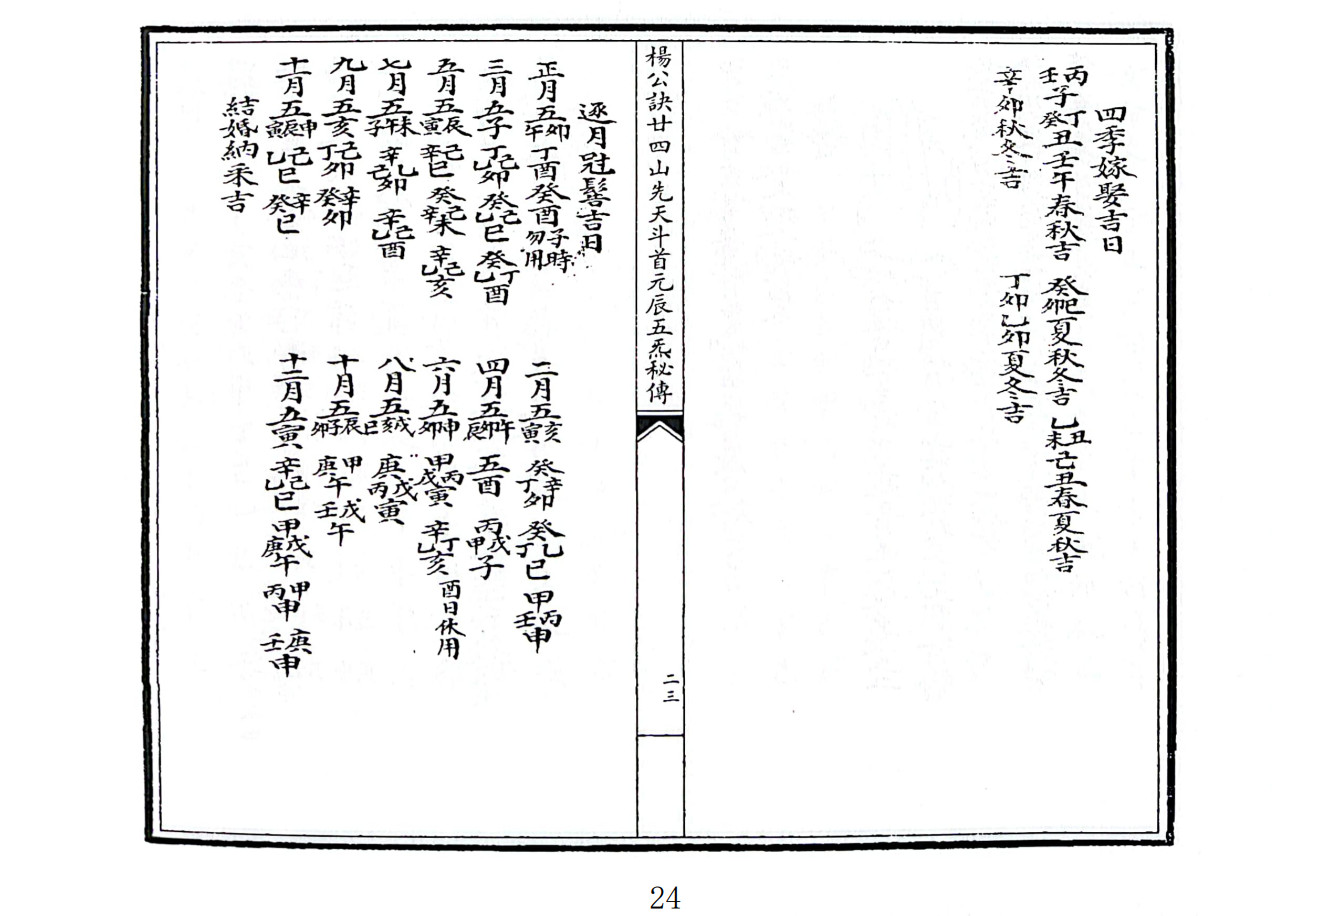 四季嫁娶吉日
丙壬子癸丁丑壬午春秋吉 癸卯巳夏秋冬吉 乙丑未亡丑春夏秋吉
辛卯秋冬吉 丁卯乙卯夏冬吉
楊公訣廿四山先天斗首元辰五炁秘傳
二三
逐月冠髻吉日
正月五卯午丁酉癸酉子時勿用 二月五亥寅 癸辛丁卯 癸乙丁巳 甲丙壬申
三月五子丁己卯癸己乙巳癸丁乙酉 四月五午卯辰五酉 丙戊甲子
五月五辰寅己辛巳癸己辛未辛己乙亥 六月五申卯甲丙戊寅 辛丁乙亥 酉日休用
七月五未午子辛乙己卯辛己乙酉 八月五戌亥庚戊丙寅
九月五亥己丁卯辛癸卯 十月五辰子卯巳甲庚午戊壬午
十一月五申辰寅己乙巳辛癸巳 十二月五寅 辛己乙巳 甲戊庚午 甲丙申 庚壬申
結婚納釆吉
24